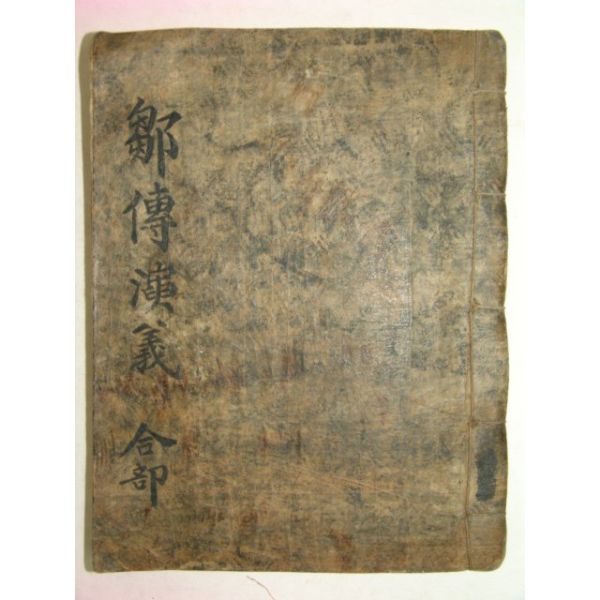 鄒傳演義 合部